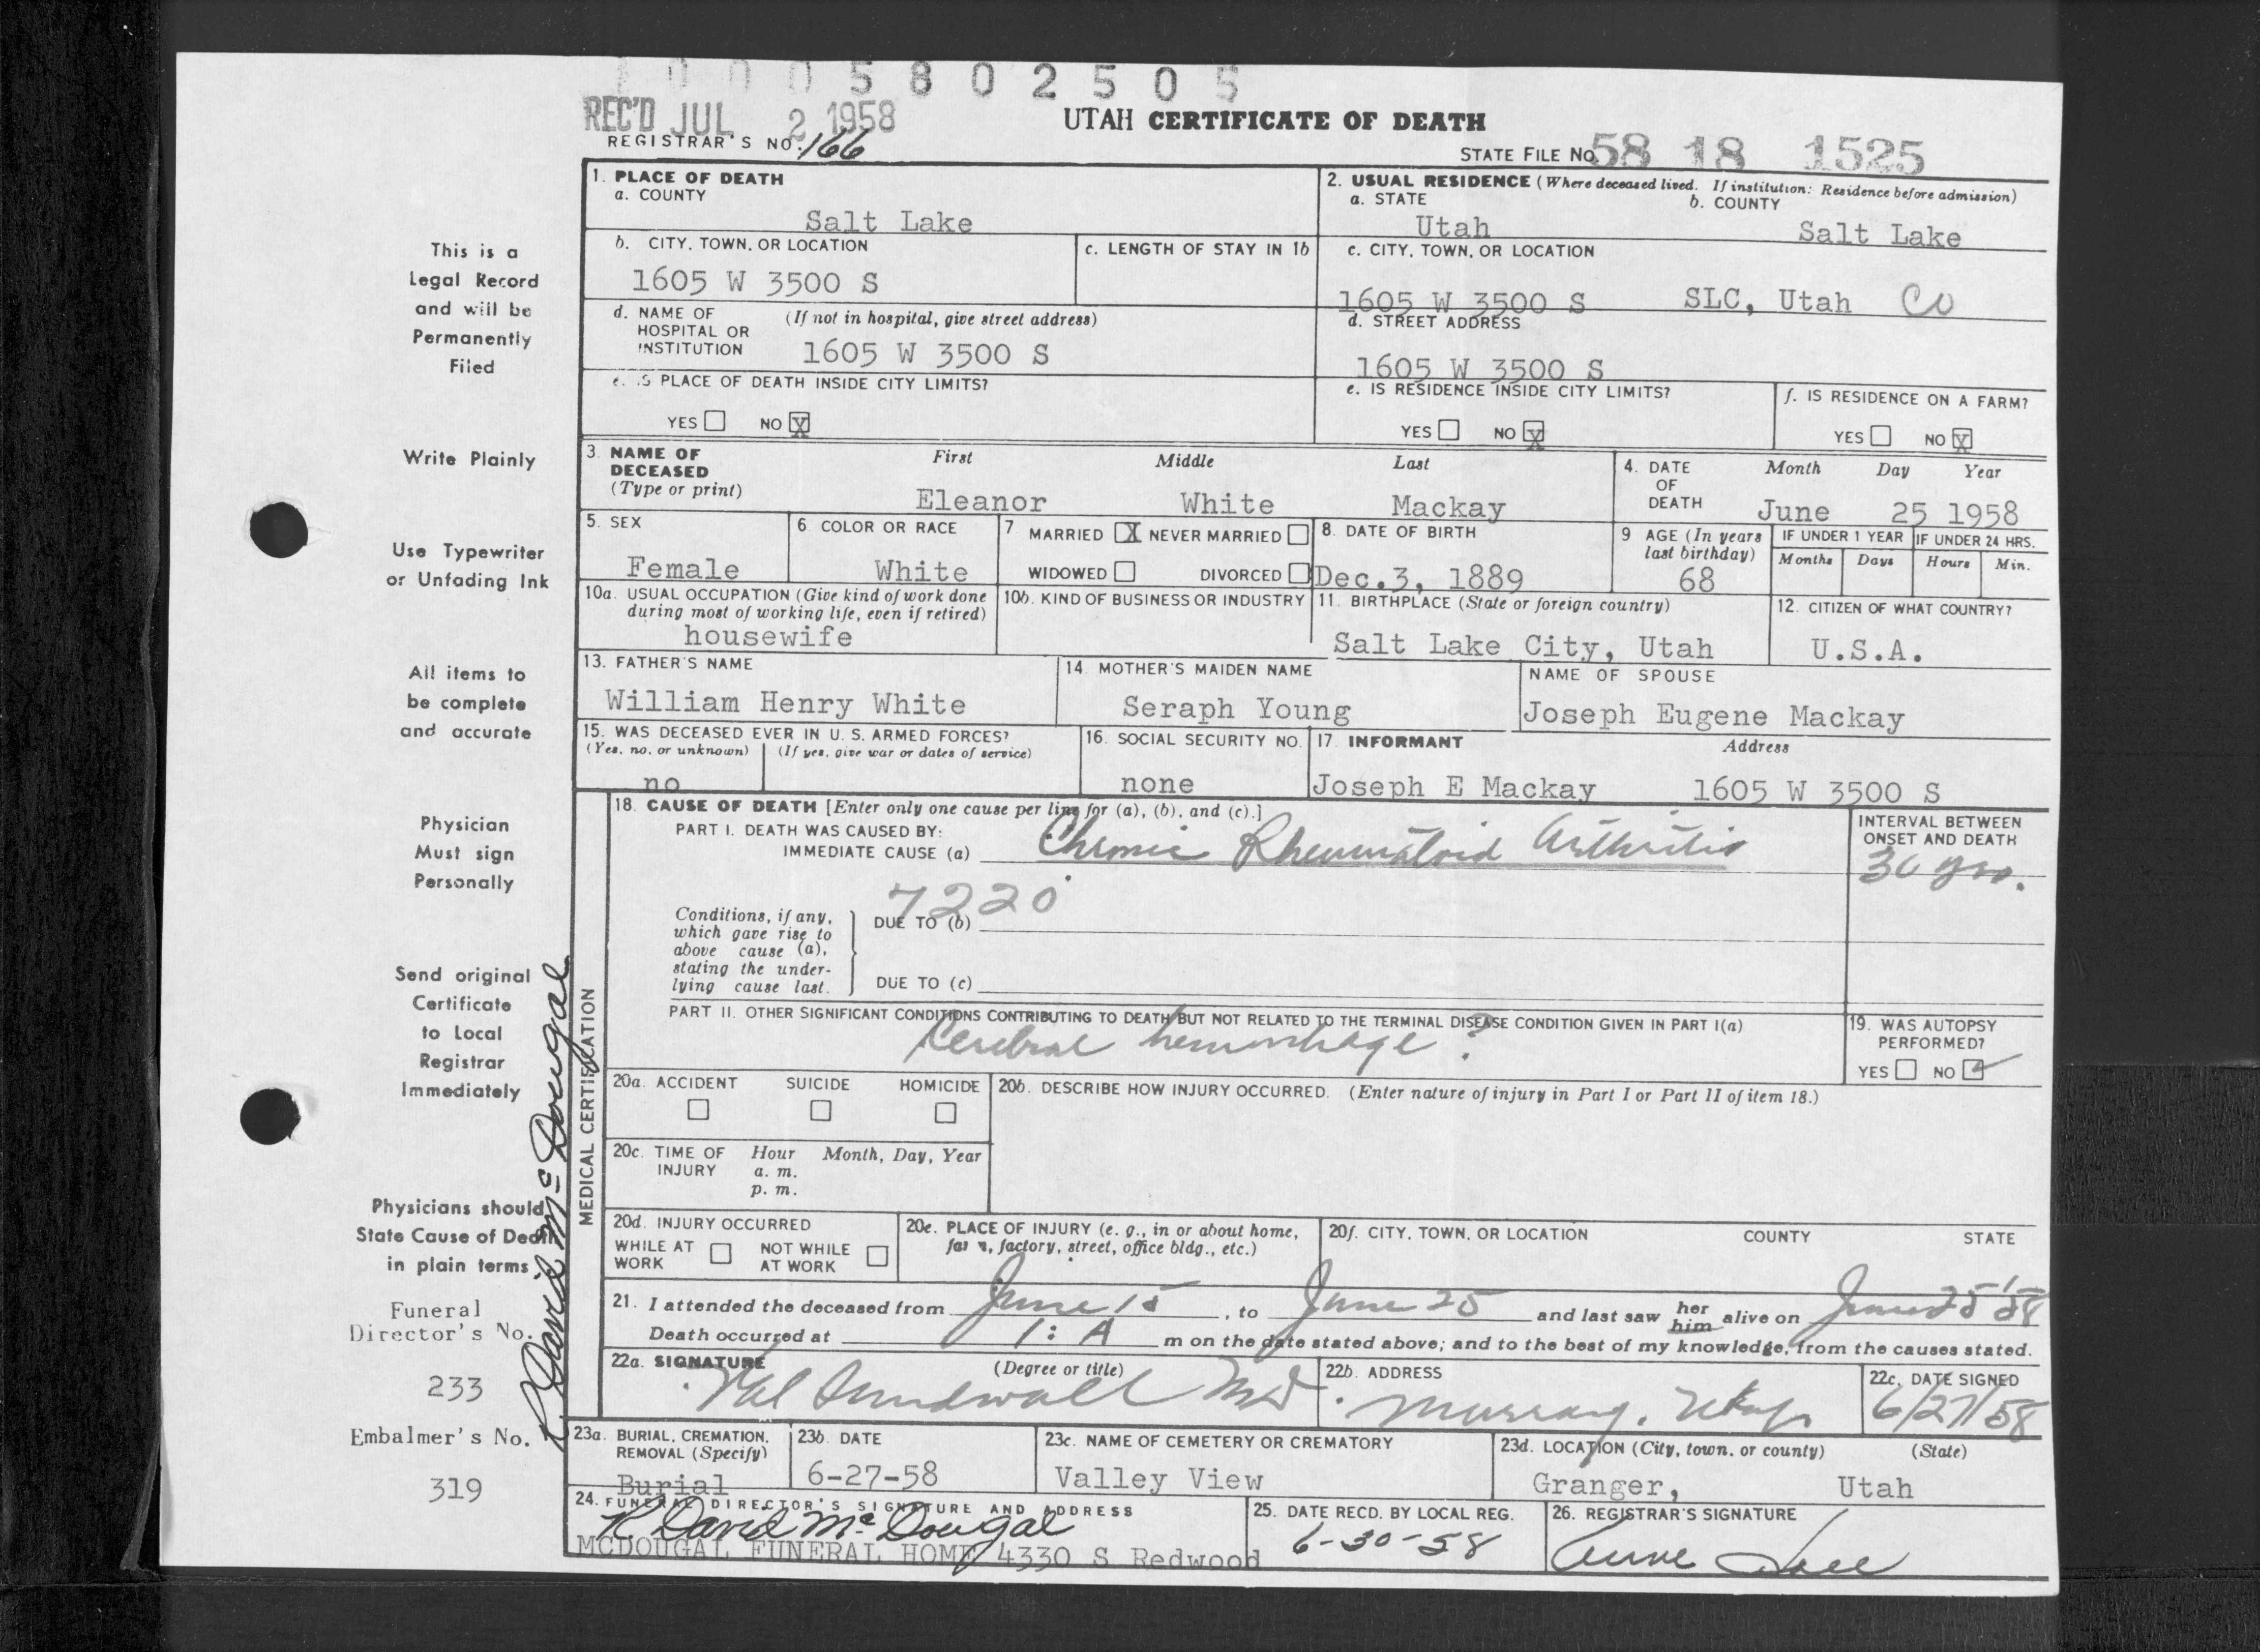 1 0 0 0 5 8 0 2 5 0 5
REC'D JUL 2 1958
UTAH CERTIFICATE OF DEATH
REGISTRAR'S NO. 166
STATE FILE No. 58 18 1525
This is a
Legal Record
and will be
Permanently
Filed
Write Plainly
Use Typewriter
or Unfading Ink
All items to
be complete
and accurate
Physician
Must sign
Personally
Send original
Certificate
to Local
Registrar
Immediately
Physicians should
State Cause of Death
in plain terms
Funeral
Director's No.
233
Embalmer's No.
319
R David McDougal
1. PLACE OF DEATH
a. COUNTY
Salt Lake
2. USUAL RESIDENCE (Where deceased lived. If institution: Residence before admission)
a. STATE b. COUNTY
Utah Salt Lake
b. CITY, TOWN, OR LOCATION
1605 W 3500 S
c. LENGTH OF STAY IN 1b
c. CITY, TOWN, OR LOCATION
1605 W 3500 S SLC, Utah CO
d. NAME OF (If not in hospital, give street address)
HOSPITAL OR
INSTITUTION 1605 W 3500 S
d. STREET ADDRESS
1605 W 3500 S
e. IS PLACE OF DEATH INSIDE CITY LIMITS?
YES NO X
e. IS RESIDENCE INSIDE CITY LIMITS?
YES NO X
f. IS RESIDENCE ON A FARM?
YES NO X
3. NAME OF First Middle Last
DECEASED
(Type or print)
Eleanor White Mackay
4. DATE Month Day Year
OF
DEATH June 25 1958
5. SEX
Female
6 COLOR OR RACE
White
7 MARRIED X NEVER MARRIED
WIDOWED DIVORCED
8. DATE OF BIRTH
Dec.3, 1889
9 AGE (In years
last birthday)
68
IF UNDER 1 YEAR IF UNDER 24 HRS.
Months Days Hours Min.
10a. USUAL OCCUPATION (Give kind of work done
during most of working life, even if retired)
housewife
10b. KIND OF BUSINESS OR INDUSTRY
11. BIRTHPLACE (State or foreign country)
Salt Lake City, Utah
12. CITIZEN OF WHAT COUNTRY?
U.S.A.
13. FATHER'S NAME
William Henry White
14. MOTHER'S MAIDEN NAME
Seraph Young
NAME OF SPOUSE
Joseph Eugene Mackay
15. WAS DECEASED EVER IN U. S. ARMED FORCES?
(Yes, no, or unknown) (If yes, give war or dates of service)
no
16. SOCIAL SECURITY NO.
none
17. INFORMANT Address
Joseph E Mackay 1605 W 3500 S
MEDICAL CERTIFICATION
18. CAUSE OF DEATH [Enter only one cause per line for (a), (b), and (c).]
PART I. DEATH WAS CAUSED BY:
IMMEDIATE CAUSE (a) Chronic Rheumatoid Arthritis
INTERVAL BETWEEN
ONSET AND DEATH
30 yrs.
7220
Conditions, if any,
which gave rise to
above cause (a),
stating the under-
lying cause last.
DUE TO (b)
DUE TO (c)
PART II. OTHER SIGNIFICANT CONDITIONS CONTRIBUTING TO DEATH BUT NOT RELATED TO THE TERMINAL DISEASE CONDITION GIVEN IN PART I(a)
Cerebral hemorrhage ?
19. WAS AUTOPSY
PERFORMED?
YES NO ✓
20a. ACCIDENT SUICIDE HOMICIDE
20b. DESCRIBE HOW INJURY OCCURRED. (Enter nature of injury in Part I or Part II of item 18.)
20c. TIME OF Hour Month, Day, Year
INJURY a. m.
p. m.
20d. INJURY OCCURRED
WHILE AT NOT WHILE
WORK AT WORK
20e. PLACE OF INJURY (e. g., in or about home,
farm, factory, street, office bldg., etc.)
20f. CITY, TOWN, OR LOCATION COUNTY STATE
21. I attended the deceased from June 15, to June 25 and last saw her him alive on June 25 '58
Death occurred at 1: A m on the date stated above; and to the best of my knowledge, from the causes stated.
22a. SIGNATURE (Degree or title)
Val Sundwall MD
22b. ADDRESS
Murray, Utah
22c. DATE SIGNED
6/27/58
23a. BURIAL, CREMATION,
REMOVAL (Specify)
Burial
23b. DATE
6-27-58
23c. NAME OF CEMETERY OR CREMATORY
Valley View
23d. LOCATION (City, town, or county) (State)
Granger, Utah
24. FUNERAL DIRECTOR'S SIGNATURE AND ADDRESS
R David McDougal
MCDOUGAL FUNERAL HOME 4330 S Redwood
25. DATE RECD. BY LOCAL REG.
6-30-58
26. REGISTRAR'S SIGNATURE